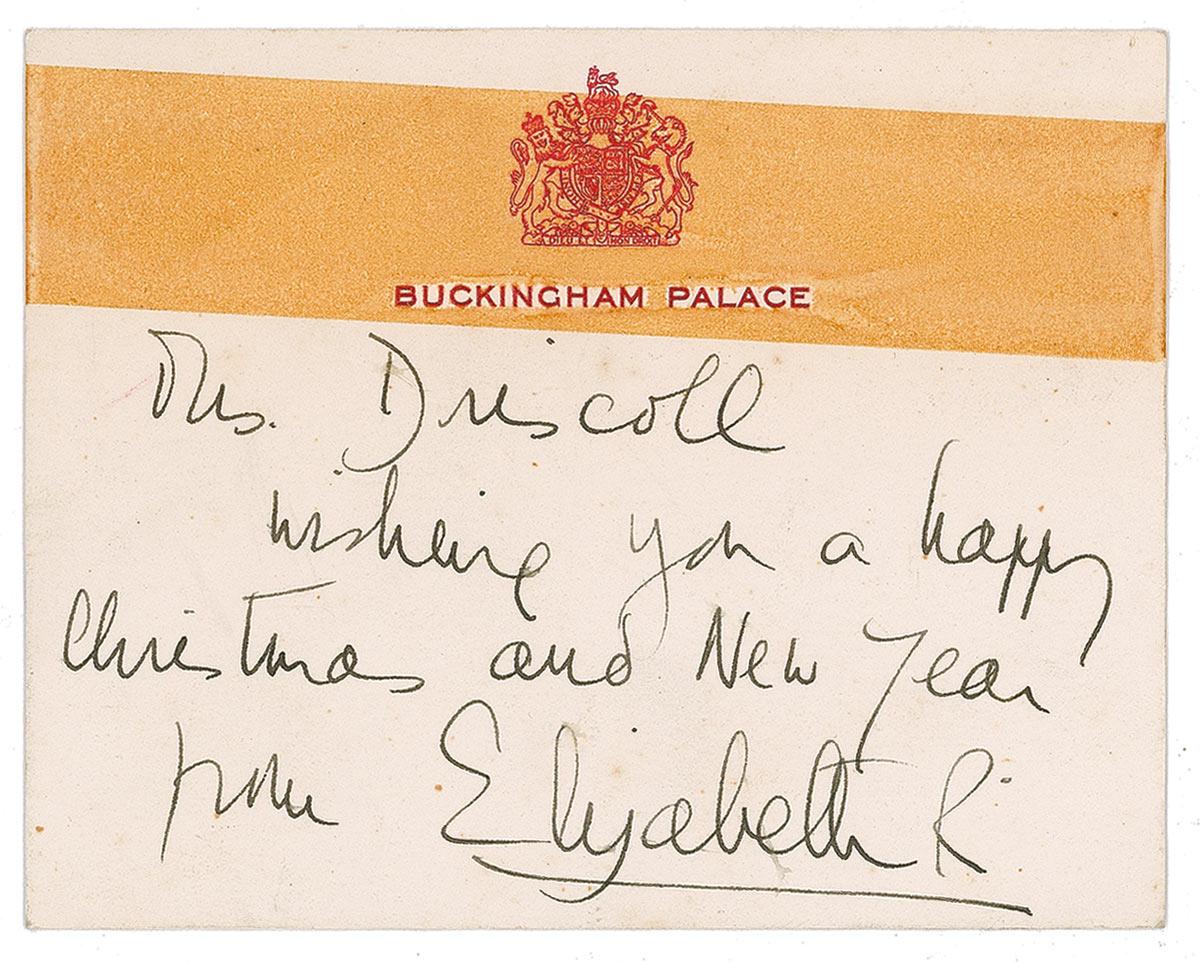 DIEU ET MON DROIT
BUCKINGHAM PALACE
Mrs. Driscoll
wishing you a happy
Christmas and New Year
from Elizabeth R